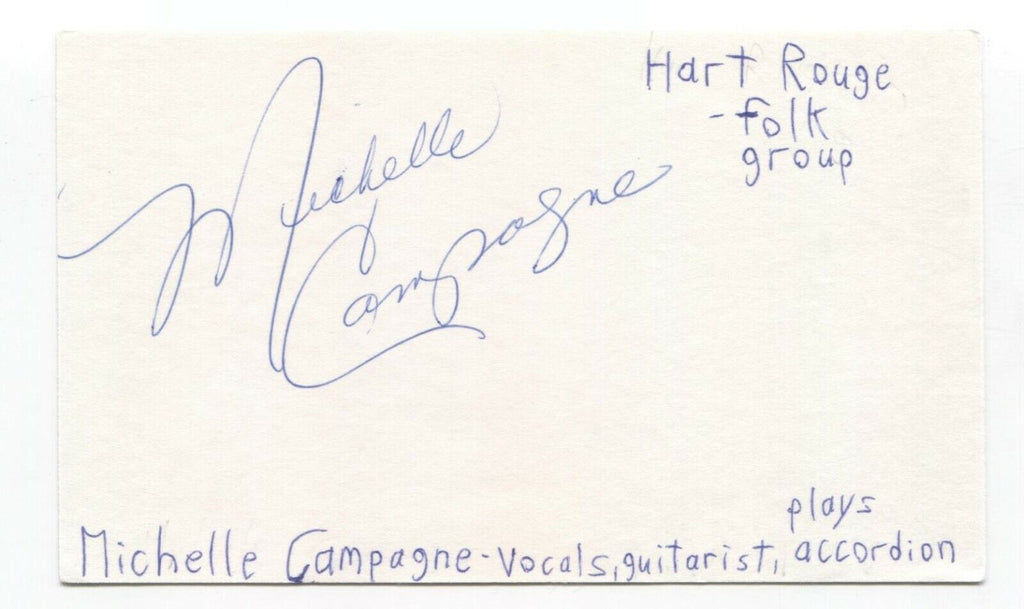 Hart Rouge
- folk
group
Michelle
Campagne
plays
Michelle Campagne - vocals, guitarist, accordion